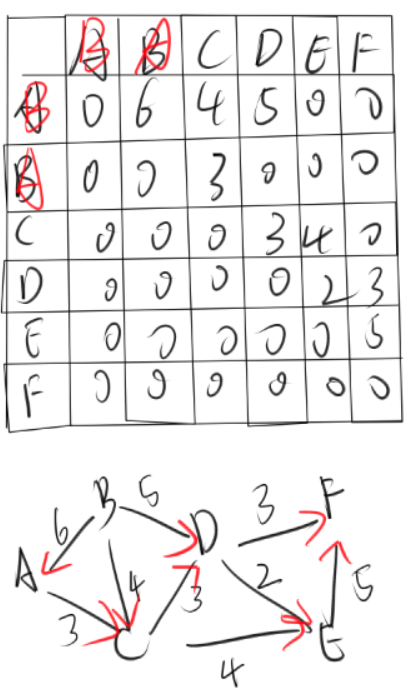 B A C D E F
B 0 6 4 5 0 0
A 0 0 3 0 0 0
C 0 0 0 3 4 0
D 0 0 0 0 2 3
E 0 0 0 0 0 5
F 0 0 0 0 0 0
B 5 3 F
6 D
A 4 2 5
3 3
C E
4